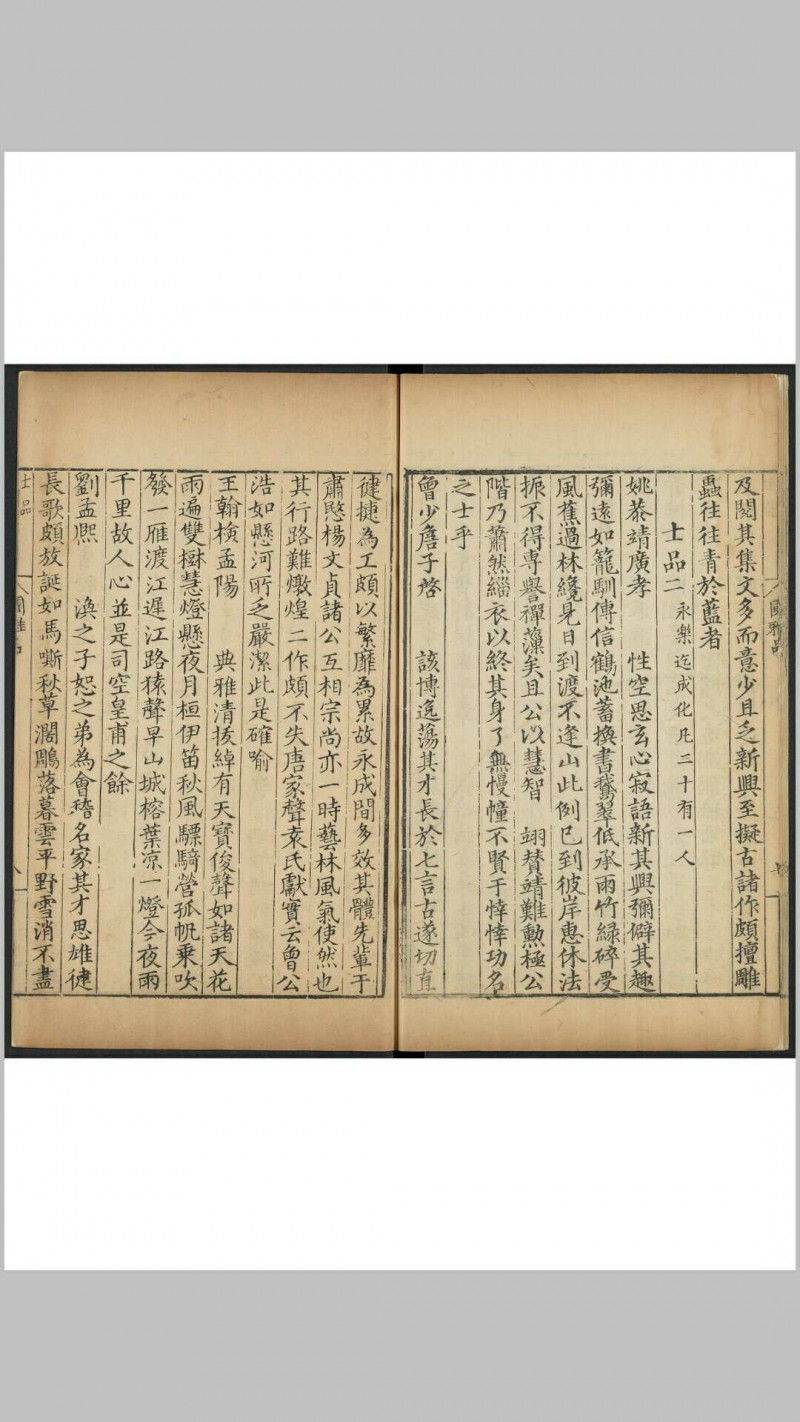 及閱其集文多而意少且乏新興至擬古諸作頗擅雕
蟲往往青於藍者
士品二 永樂迄成化凡二十有一人
姚恭靖廣孝 性空思玄心寂語新其興彌僻其趣
彌遠如籠馴傳信鶴池蓄換書鵞翠低承雨竹綠碎受
風蕉過林纔見日到渡不逢山此例已到彼岸惠休法
振不得專譽禪藻矣且公以慧智 翊賛靖難勲極公
階乃蕭然緇衣以終其身了無慢幢不賢于悻悻功名
之士乎
曾少詹子棨 該博逸蕩其才長於七言古遂切直
徤捷為工頗以繁靡為累故永成間多效其體先輩于
肅愍楊文貞諸公互相宗尚亦一時藝林風氣使然也
其行路難燉煌二作頗不失唐家聲袁氏獻實云曾公
浩如懸河所乏嚴潔此是確喻
王翰檢孟陽 典雅清拔綽有天寶俊聲如諸天花
雨遍雙樹慧燈懸夜月桓伊笛秋風驃騎營孤帆乘吹
發一雁渡江遲江路猿聲早山城榕葉涼一燈今夜雨
千里故人心並是司空皇甫之餘
劉孟熈 渙之子恕之弟為會稽名家其才思雄徤
長歌頗放誕如馬嘶秋草濶鵰落暮雲平野雪消不盡
士品